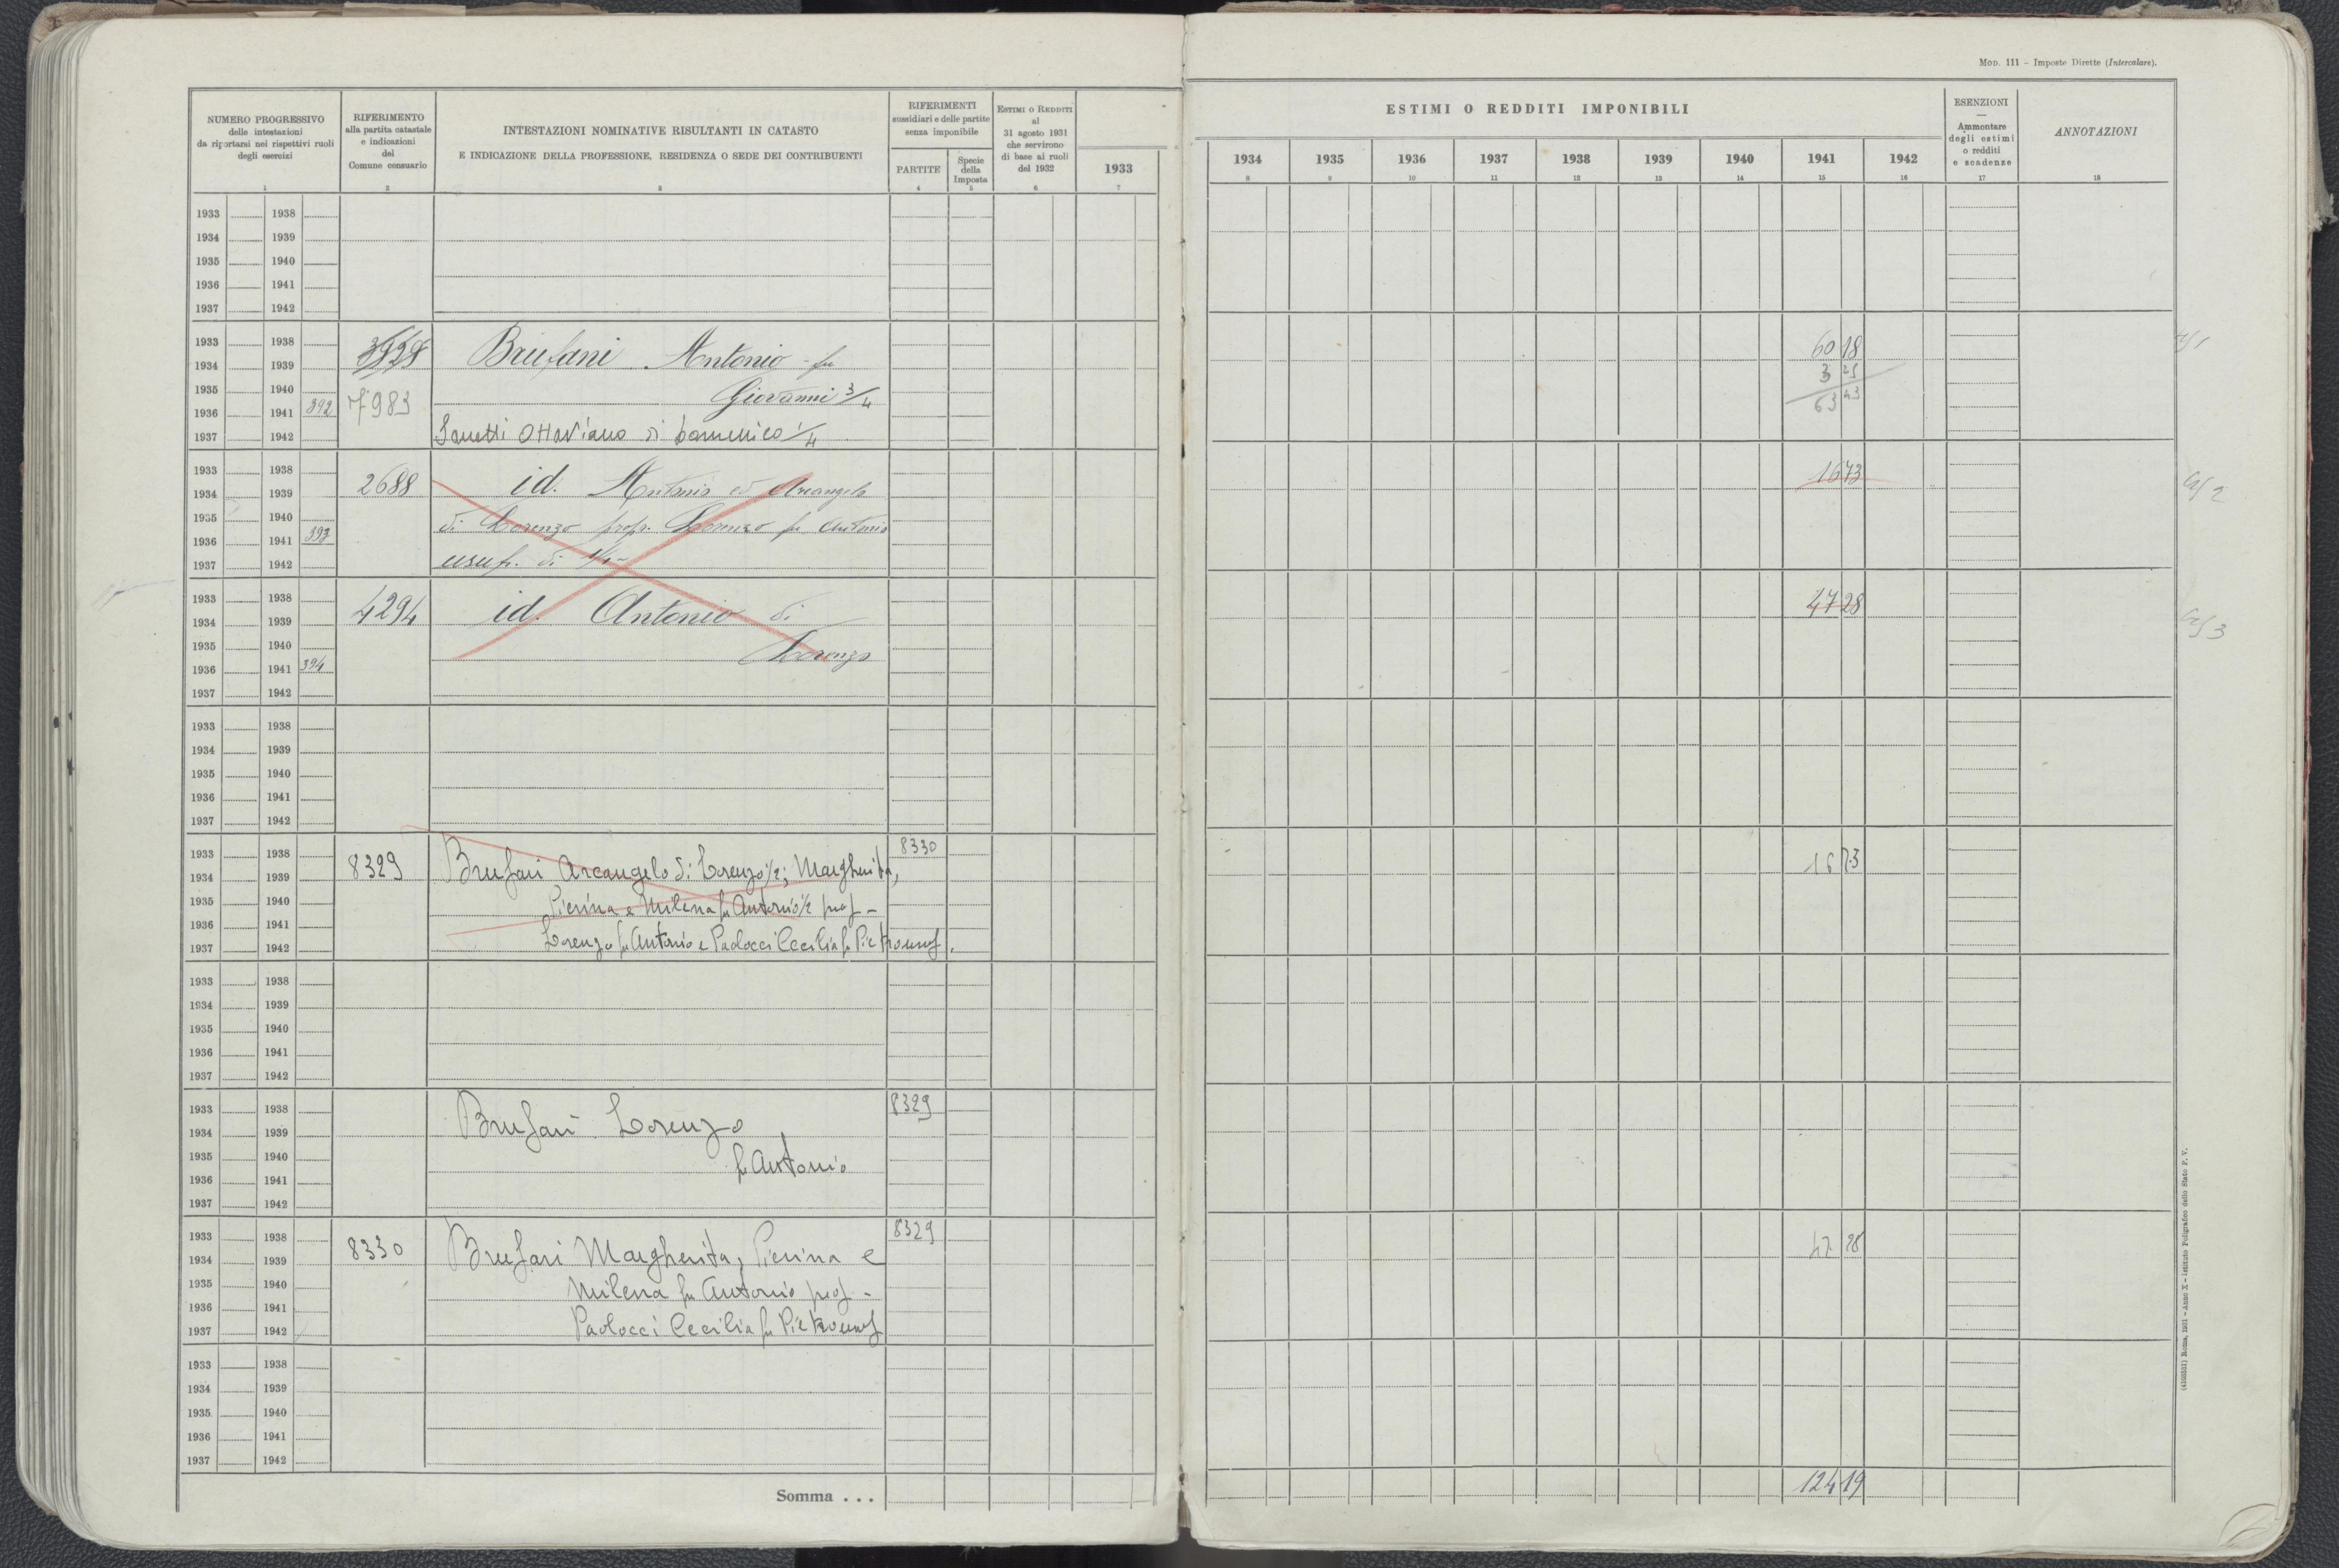 MOD. 111 - Imposte Dirette (Intercalare).
NUMERO PROGRESSIVO
delle intestazioni
da riportarsi nei rispettivi ruoli
degli esercizi
1
RIFERIMENTO
alla partita catastale
e indicazioni
del
Comune censuario
2
INTESTAZIONI NOMINATIVE RISULTANTI IN CATASTO
E INDICAZIONE DELLA PROFESSIONE, RESIDENZA O SEDE DEI CONTRIBUENTI
3
RIFERIMENTI
sussidiari e delle partite
senza imponibile
PARTITE
4
Specie
della
Imposta
5
ESTIMI O REDDITI
al
31 agosto 1931
che servirono
di base ai ruoli
del 1932
6
1933
7
ESTIMI O REDDITI IMPONIBILI
1934 1935 1936 1937 1938 1939 1940 1941 1942
8 9 10 11 12 13 14 15 16
ESENZIONI
—
Ammontare
degli estimi
o redditi
e scadenze
17
ANNOTAZIONI
18
1933 1938
1934 1939
1935 1940
1936 1941
1937 1942
1933 1938 3928 Brufani Antonio fu 60 18
1934 1939 3 25
1935 1940 7983 Giovanni 3/4 63 43
1936 1941 392
1937 1942 Ottaviano di Domenico 1/4
1933 1938 2688 id. Antonio ed Arcangelo 16 73
1934 1939
1935 1940 di Lorenzo propr. Lorenzo fu Antonio
1936 1941 393
1937 1942 usuf. di 1/4 -
1933 1938 4294 id. Antonio di 47 28
1934 1939
1935 1940 Lorenzo
1936 1941 394
1937 1942
1933 1938
1934 1939
1935 1940
1936 1941
1937 1942
1933 1938 8330
1934 1939 8329 Brufani Arcangelo di Lorenzo 1/2; Margherita, 16 73
1935 1940 Pierina e Milena fu Antonio 1/2 prop -
1936 1941
1937 1942 Lorenzo fu Antonio e Paolocci Cecilia fu Pietro usuf.
1933 1938
1934 1939
1935 1940
1936 1941
1937 1942
1933 1938 8329
1934 1939 Brufani Lorenzo
1935 1940 fu Antonio
1936 1941
1937 1942
1933 1938 8329
1934 1939 8330 Brufani Margherita, Pierina e 47 28
1935 1940 Milena fu Antonio prop -
1936 1941
1937 1942 Paolocci Cecilia fu Pietro usuf
1933 1938
1934 1939
1935 1940
1936 1941
1937 1942
Somma . . . 124 19
(4103531) Roma, 1931 - Anno X - Istituto Poligrafico dello Stato P. V.